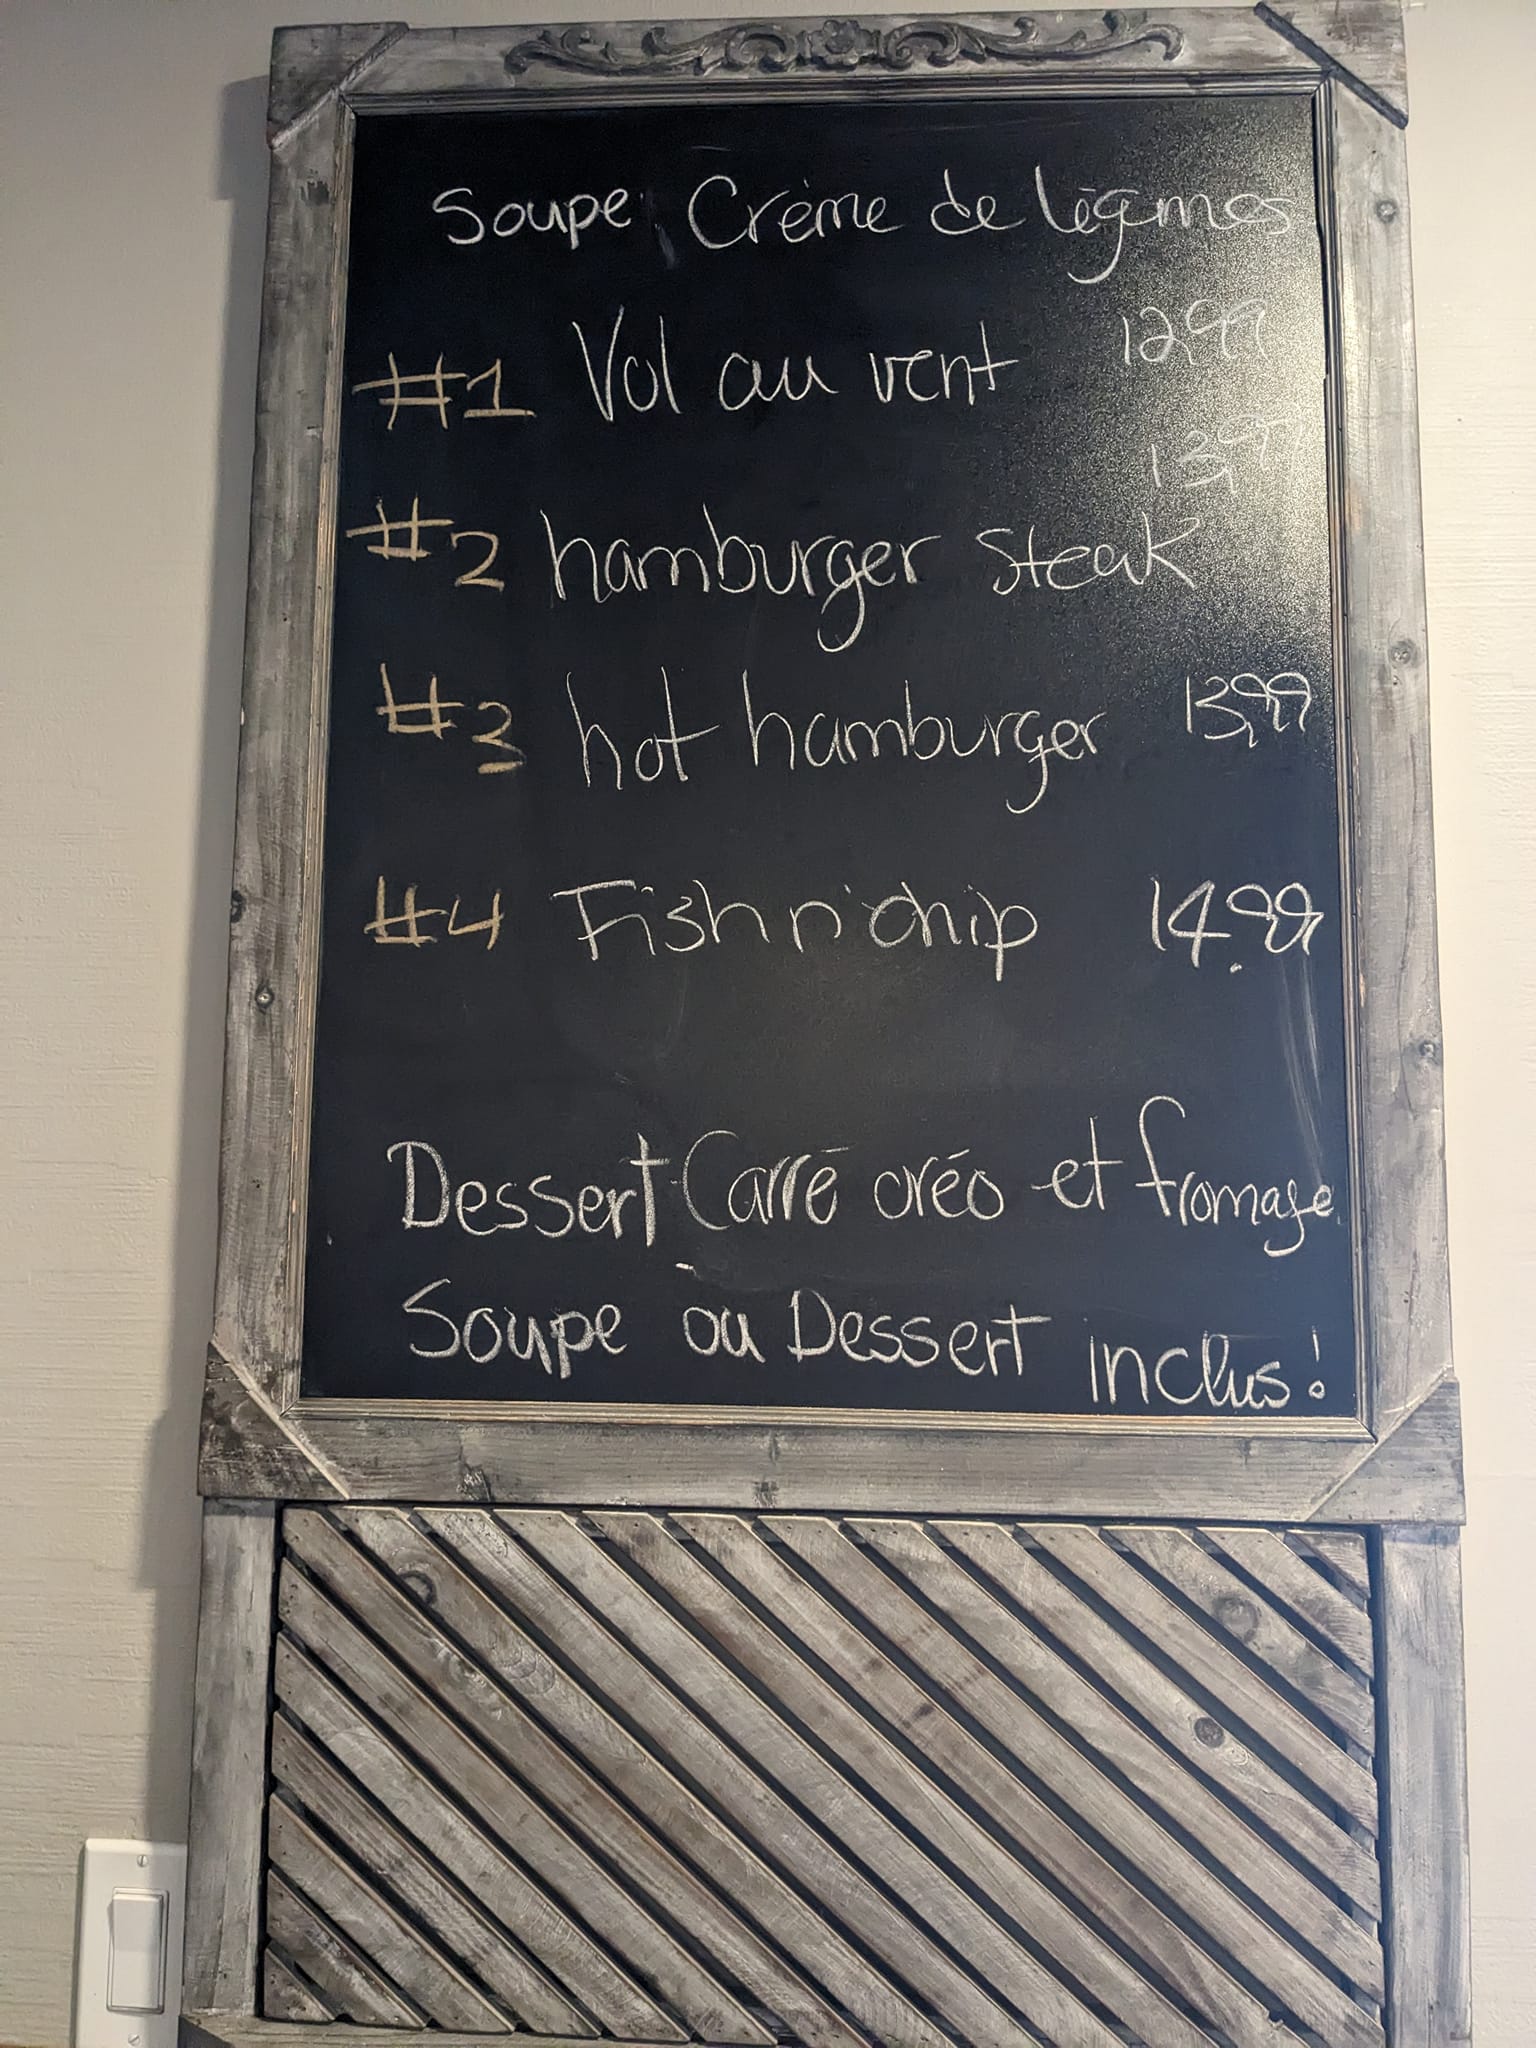 Soupe: Crème de légumes
#1 Vol au vent 12,99
13,99
#2 hamburger steak
#3 hot hamburger 13,99
#4 Fish n' chip 14.99
Dessert Carré oréo et fromage
Soupe ou Dessert inclus!